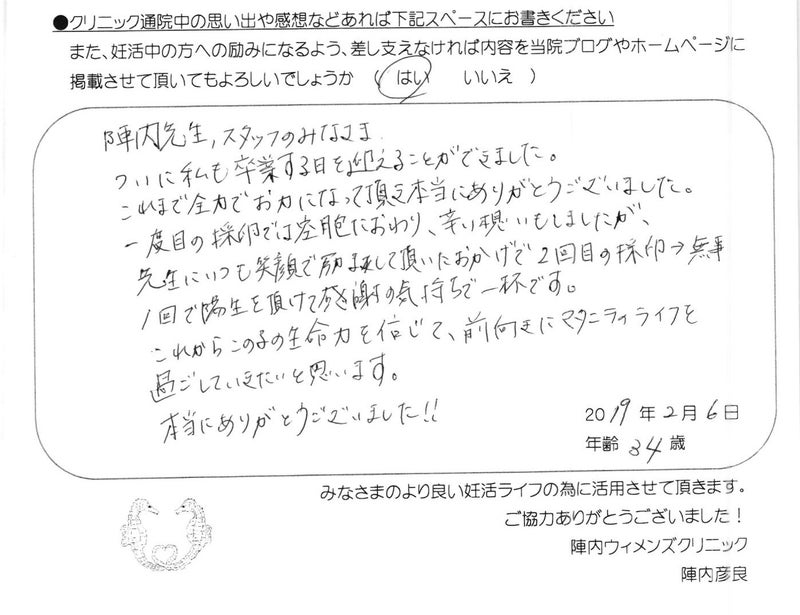 ●クリニック通院中の思い出や感想などあれば下記スペースにお書きください
また、妊活中の方への励みになるよう、差し支えなければ内容を当院ブログやホームページに
掲載させて頂いてもよろしいでしょうか ( はい いいえ )
陣内先生，スタッフのみなさま
ついに私も卒業する日を迎えることができました。
これまで全力でお力になって頂き本当にありがとうございました。
一度目の採卵では空胞におわり、辛い思いもしましたが、
先生にいつも笑顔で励まして頂いたおかげで2回目の採卵→無事
1回で陽生を頂けて感謝の気持ちで一杯です。
これからこの子の生命力を信じて、前向きにマタニティライフを
過ごしていきたいと思います。
本当にありがとうございました!!
2019年2月6日
年齢 34歳
みなさまのより良い妊活ライフの為に活用させて頂きます。
ご協力ありがとうございました！
陣内ウィメンズクリニック
陣内彦良